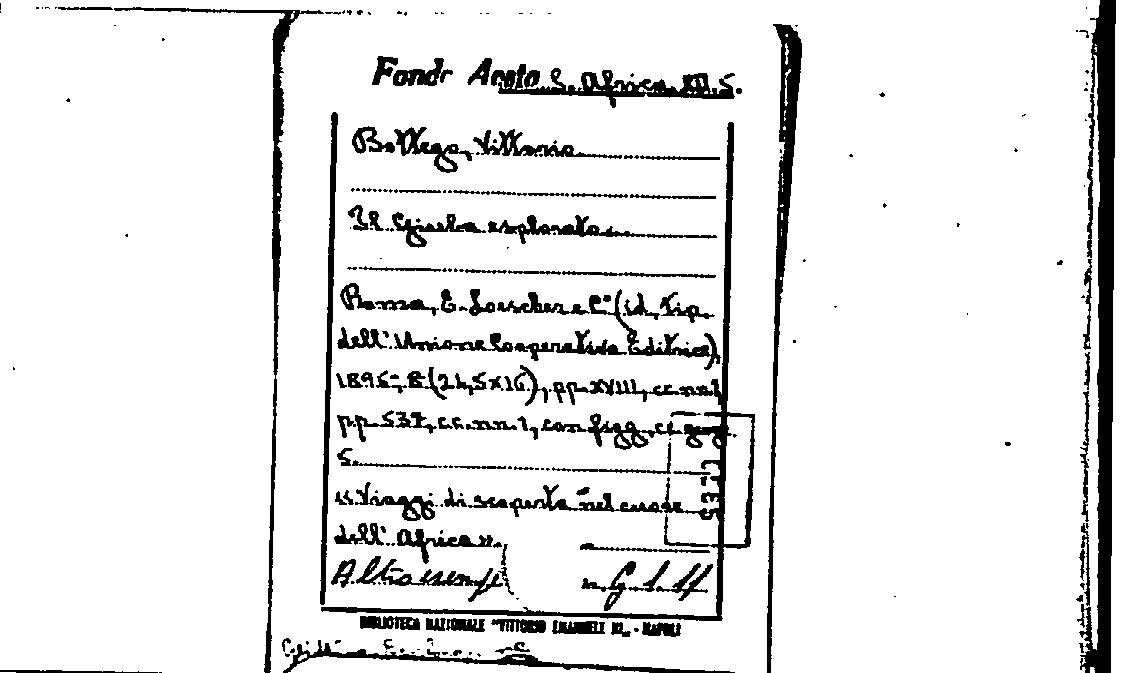 Fondo Aosta S. Africa III. 5.
Bottego, Vittorio.
Il Giuba esplorato.
Roma, E. Loescher e C° (id, Tip.
dell' Unione Cooperativa Editrice),
1895, 8 (24,5x16), pp. XVIII, cc. nn. 1,
pp. 537, cc. nn. 1, con figg., cc. geogr.
5.
«Viaggi di scoperta nel cuore
dell' Africa».
Altro esempl.
BIBLIOTECA NAZIONALE "VITTORIO EMANUELE III" - NAPOLI